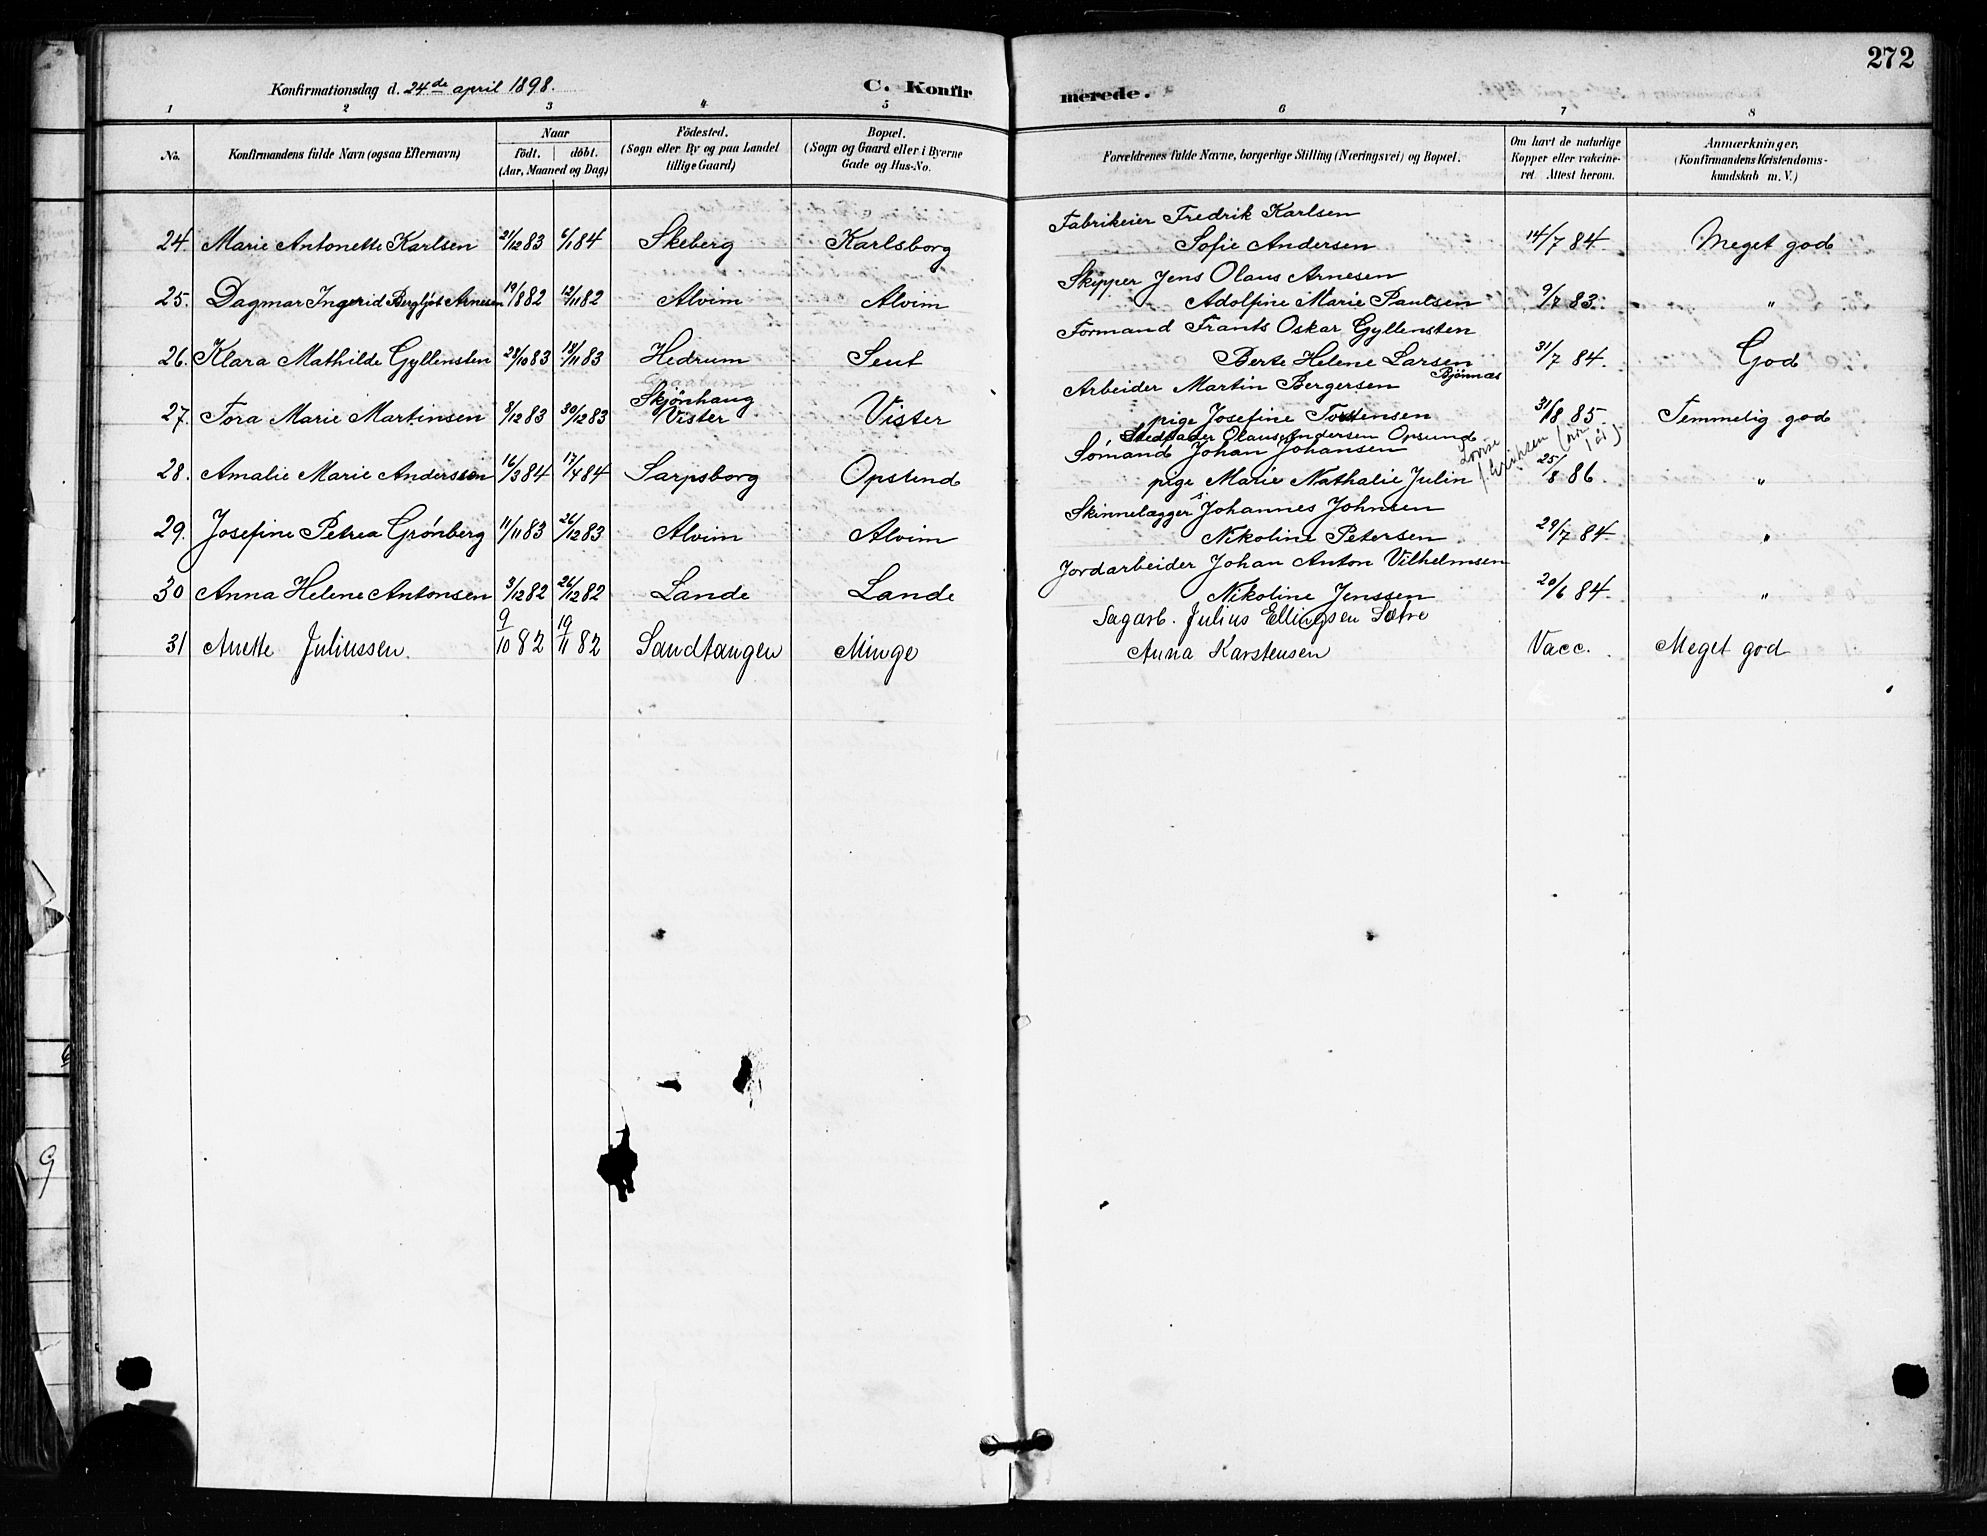 272
Konfirmationsdag d. 24de april 1898.
C. Konfirmerede.
1 2 3 4 5 6 7 8
No.
Konfirmandens fulde Navn (ogsaa Efternavn)
Naar
födt. | döbt.
(Aar, Maaned og Dag)
Födested.
(Sogn eller By og paa Landet
tillige Gaard)
Bopæl.
(Sogn og Gaard eller i Byerne
Gade og Hus-No.
Forældrenes fulde Navne, borgerlige Stilling (Næringsvei) og Bopæl.
Om havt de naturlige
Kopper eller vakcine-
ret. Attest herom.
Anmærkninger.
(Konfirmandens Kristendoms-
kundskab m. V.)
Fabrikeier Fredrik Karlsen
24. Marie Antonette Karlsen 21/12 83 6/1 84 Skeberg Karlsborg Sofie Andersen 14/7 84. Meget god
Skipper Jens Olaus Arnesen
25. Dagmar Ingerid Bergljot Arnesen 19/8 82 12/11 82 Alvim Alvim Adolfine Marie Paulsen 9/7 83. "
Formand Frants Oskar Gyllensten
26. Klara Mathilde Gyllensten 28/10 83 18/11 83 Hedrum Seut Berte Helene Larsen 31/7 84. God
Arbeider Martin Bergersen Bjönnæs
Skjønhaug
27. Tora Marie Martinsen 8/12 83 30/12 83 Vister Vister pige Josefine Torstensen 31/8 85 Temmelig god
Stedfader Olaus Andersen Opsund
Sømand Johan Johansen
28. Amalie Marie Anderssen 16/3 84 17/4 84 Sarpsborg Opsund pige Marie Nathalie Julin 25/8 86. "
Skinnelægger Johannes Johnsen
29. Josefine Petrea Grønberg 11/11 83 26/12 83 Alvim Alvim Nikoline Petersen 29/7 84 "
Jordarbeider Johan Anton Vilhelmsen
30 Anna Helene Antonsen 3/12 82 26/12 82 Lande Lande Nikoline Jenssen 20/6 84. "
Sagarb. Julius Ellingsen Sætre
31 Anette Juliussen. 9/10 82 19/11 82 Sandtangen Minge Anna Karstensen Vacc. Meget god
9